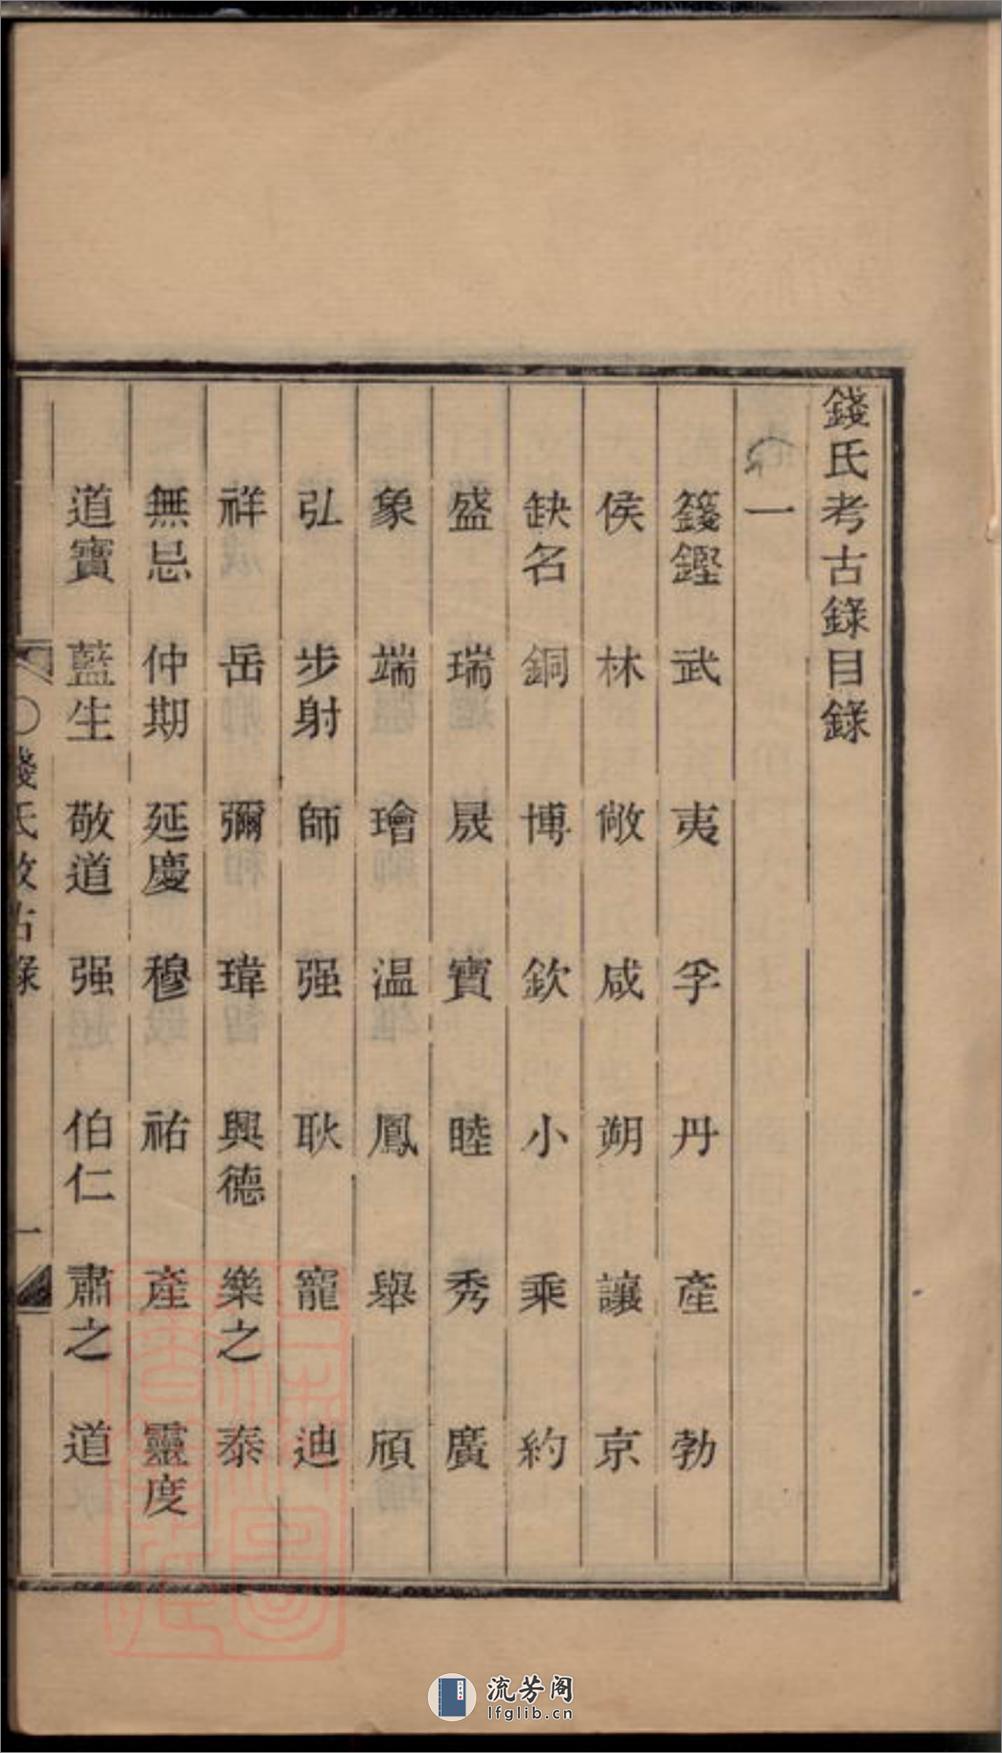 錢氏考古錄目錄
一
籛鏗 武 夷 孚 丹 產 勃
侯 林 敞 咸 朔 讓 京
缺名 銅 博 欽 小 乘 約
盛 瑞 晟 寶 睦 秀 廣
象 端 璯 温 鳳 舉 頎
弘 步射 師 强 耿 寵 迪
祥 岳 彌 瑋 興德 樂之 泰
無忌 仲期 延慶 穆 祐 產 靈度
道寶 藍生 敬道 强 伯仁 肅之 道
錢氏攷古錄 一
流芳阁
lfglib.cn